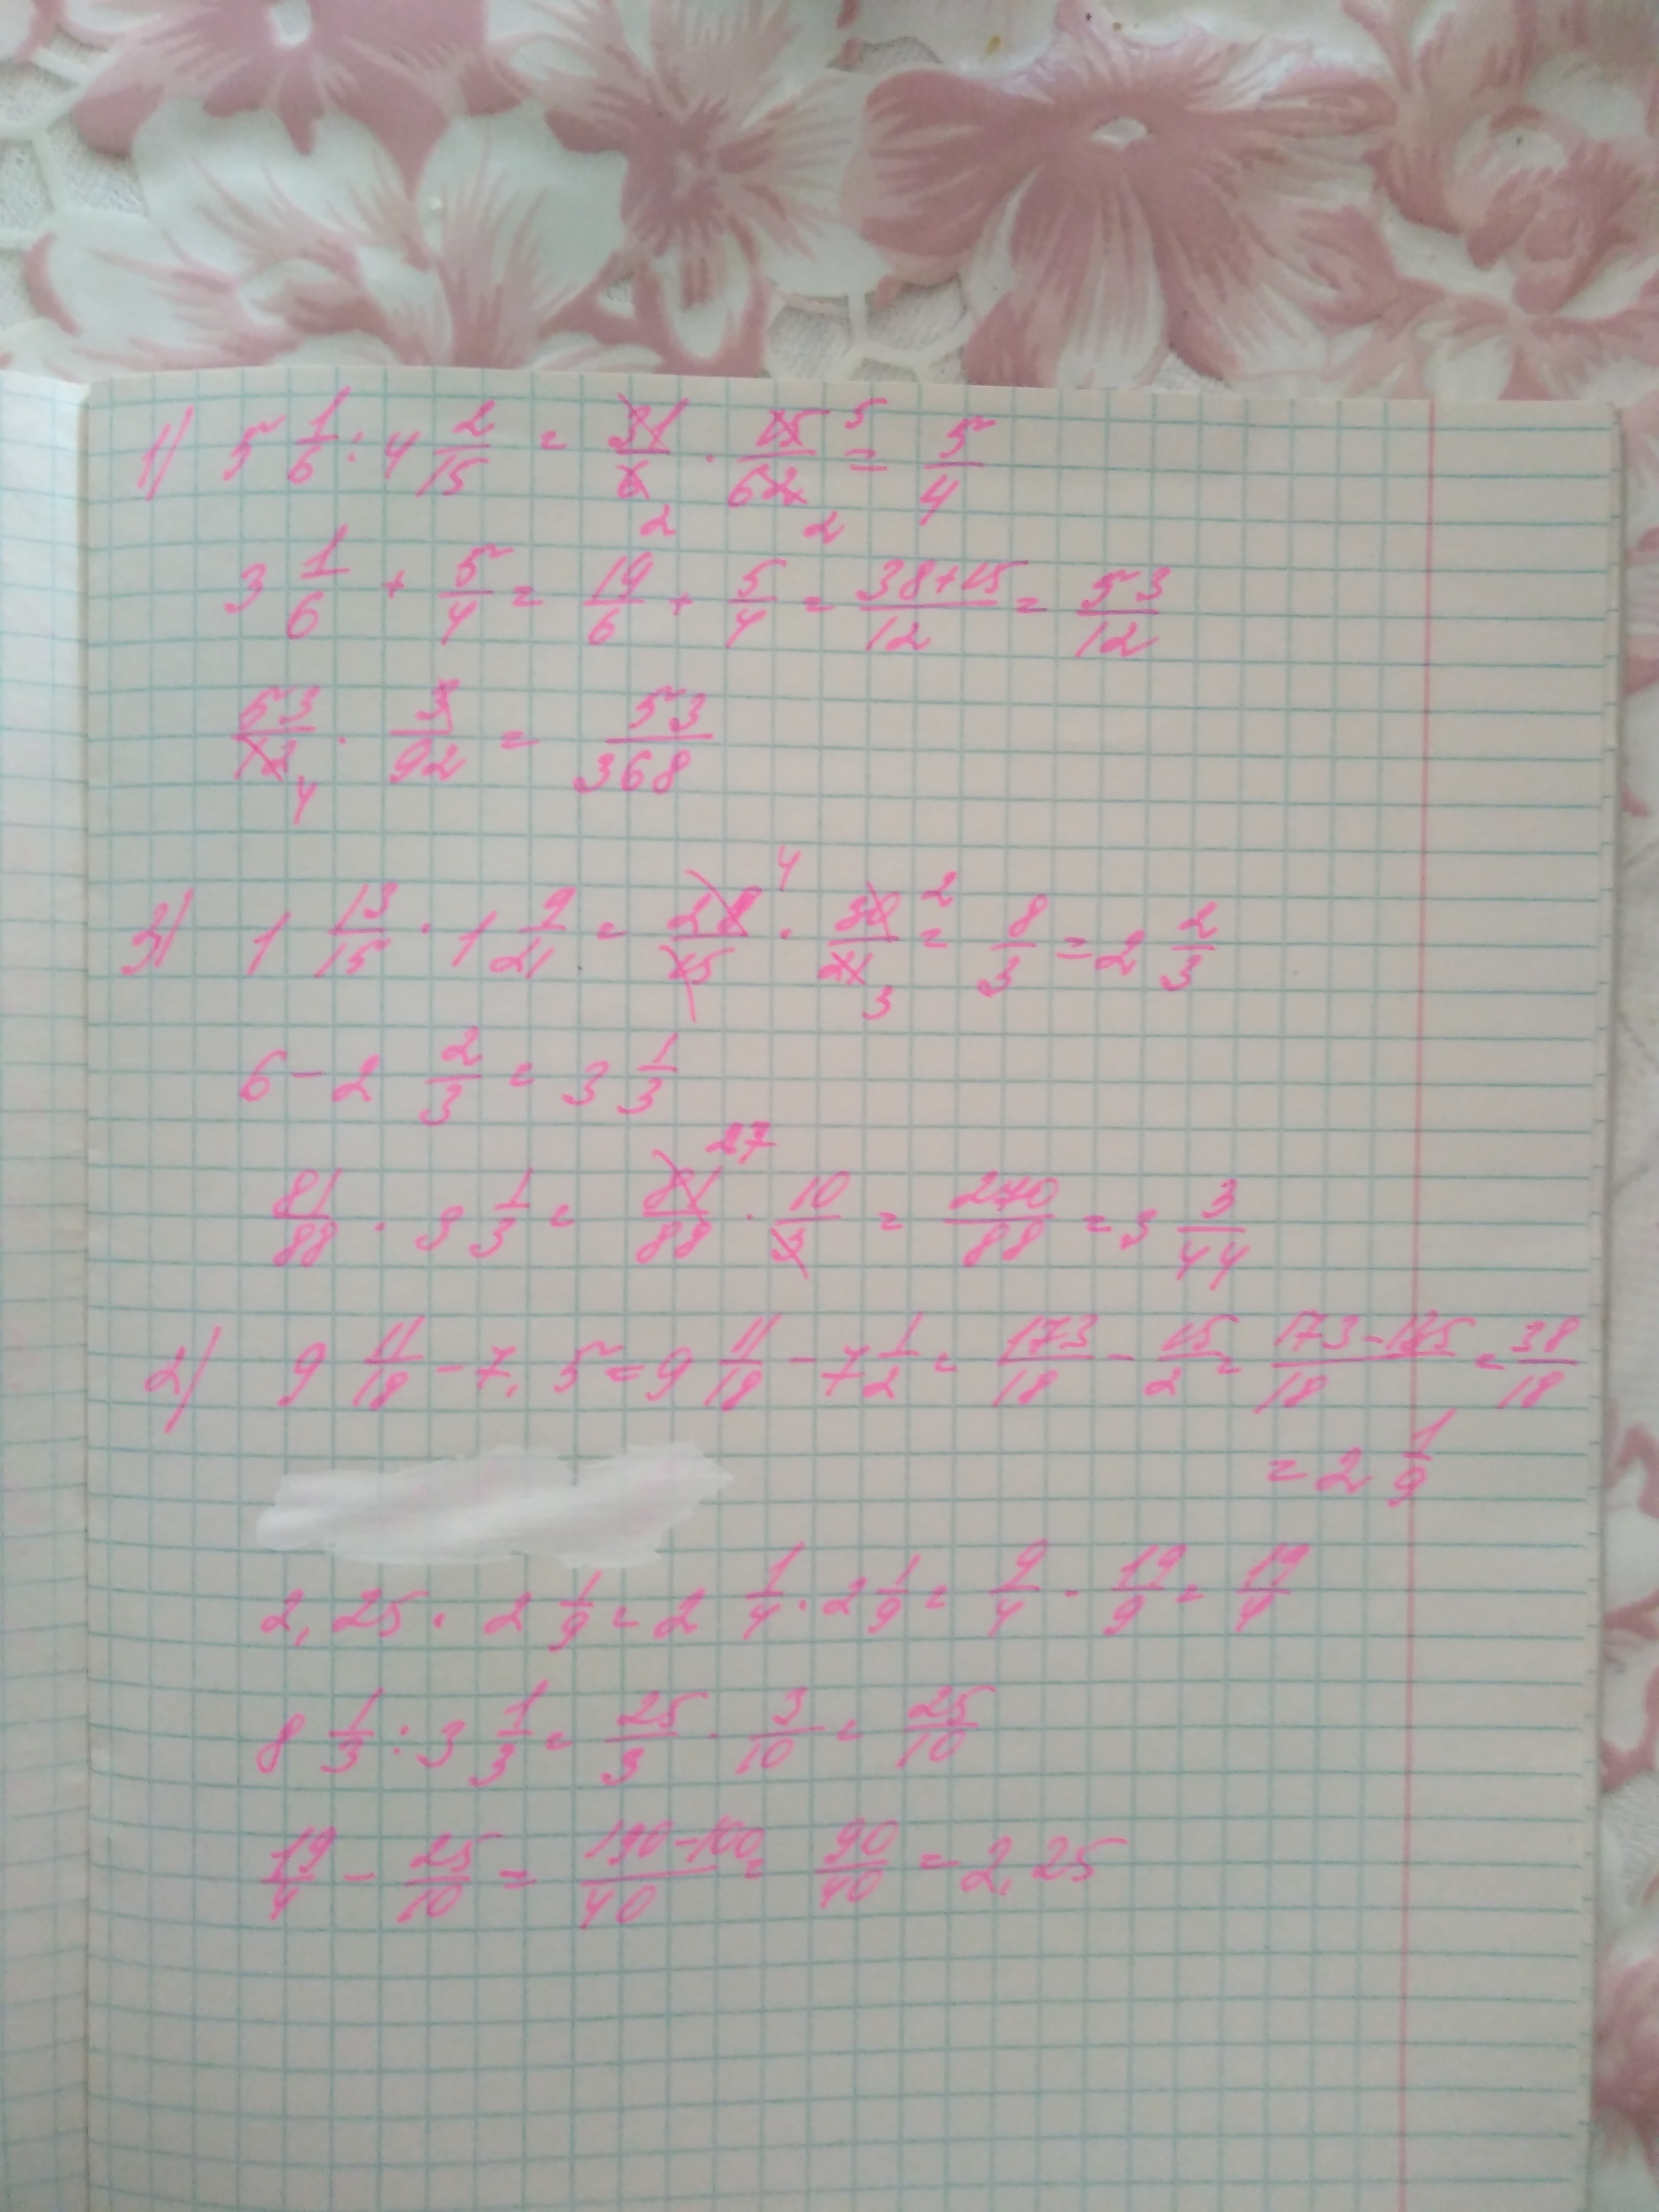 1) 5 1/6 : 4 2/15 = 31/6 2 · 15/62 5 2 = 5/4
3 1/6 + 5/4 = 19/6 + 5/4 = 38+15/12 = 53/12
53/12 4 · 3/92 = 53/368
3) 1 13/15 · 1 9/21 = 28/15 4 · 30/21 2 3 = 8/3 = 2 2/3
6 - 2 2/3 = 3 1/3
81/88 · 3 1/3 = 81/88 27 · 10/3 = 270/88 = 3 3/44
2) 9 11/18 - 7,5 = 9 11/18 - 7 1/2 = 173/18 - 15/2 = 173-135/18 = 38/18
= 2 1/9
2,25 · 2 1/9 = 2 1/4 · 2 1/9 = 9/4 · 19/9 = 19/4
8 1/3 : 3 1/3 = 25/3 · 3/10 = 25/10
19/4 - 25/10 = 190-100/40 = 90/40 = 2,25